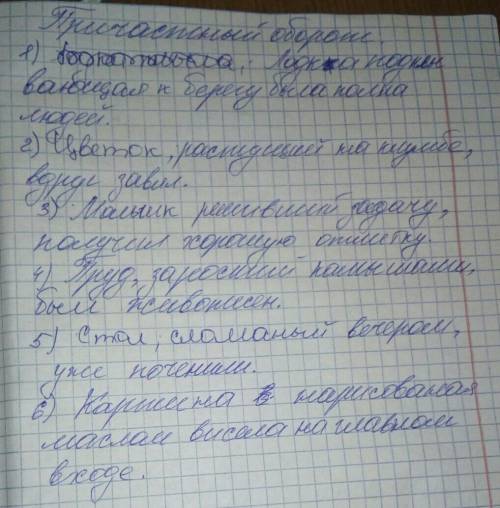 Причастный оборот.
1) Лодка подплы
вающая к берегу была полна
людей.
2) Цветок, растущий на клумбе,
вдруг завял.
3) Мальчик решивший задачу,
получил хорошую отметку.
4) Пруд, заросший камышами,
был живописен.
5) Стол, сломаный вечером,
уже починили.
6) Картина нарисованая
маслом висела на главном
входе.